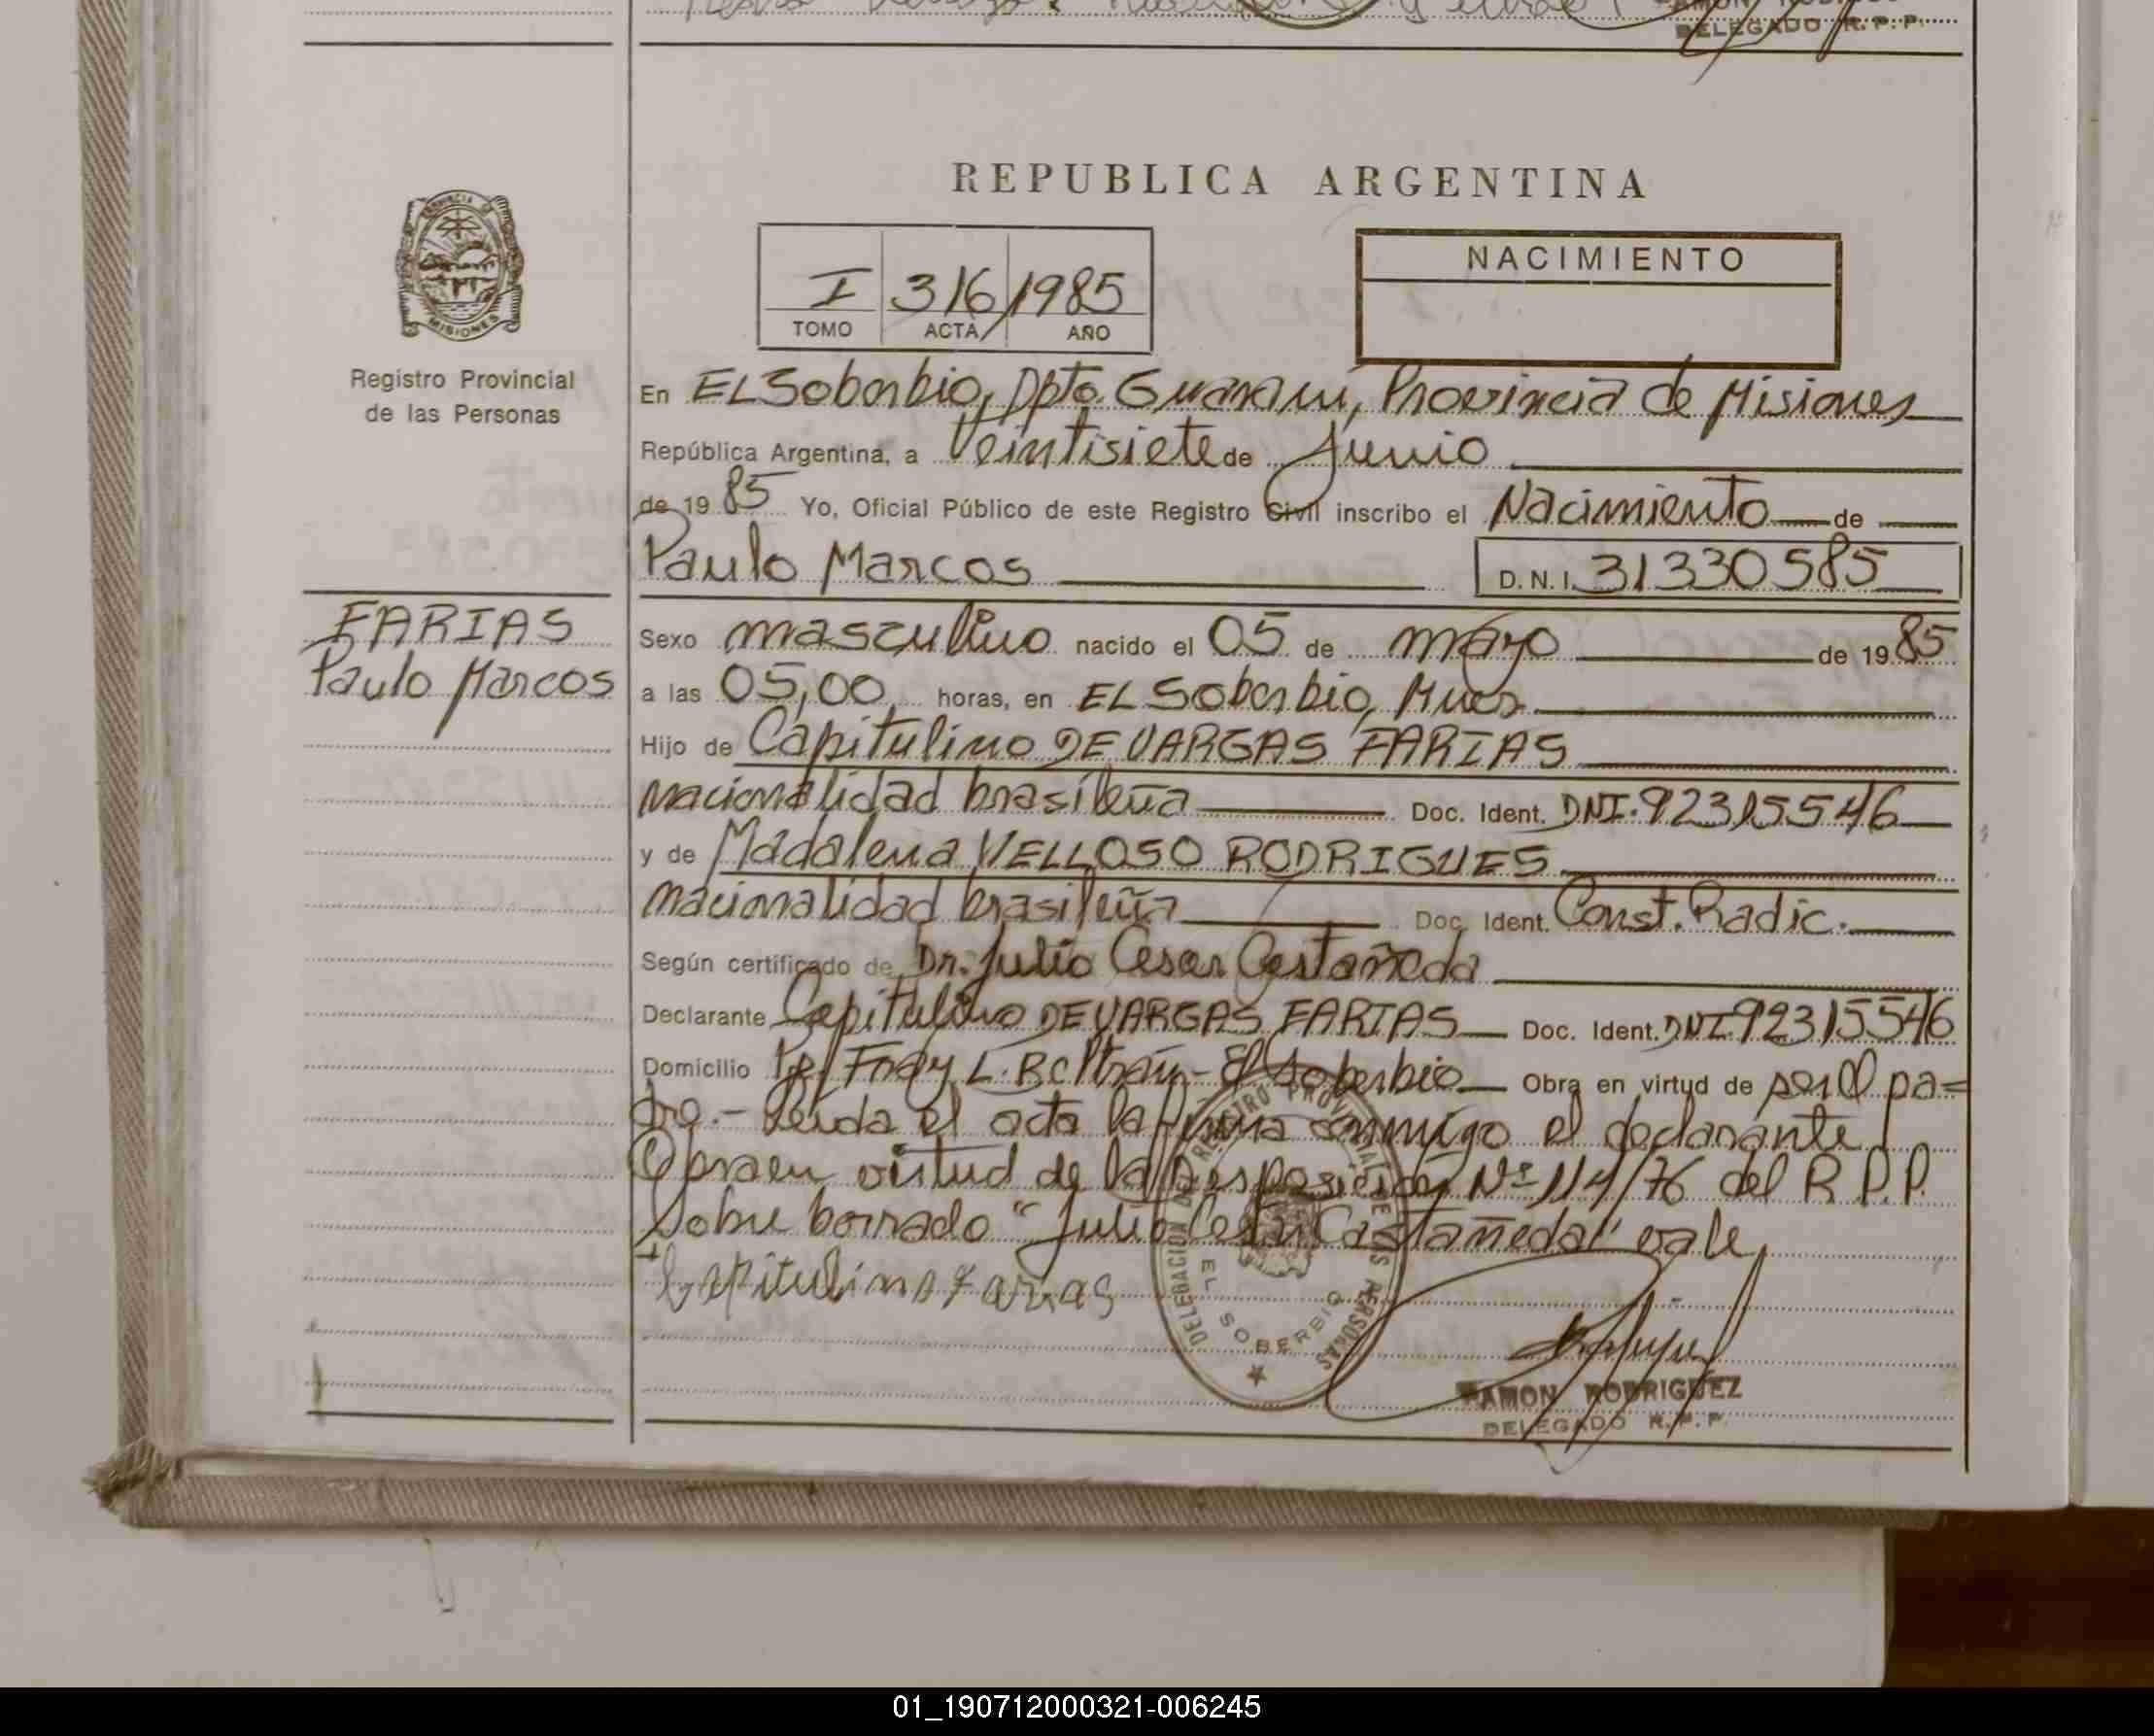 DELEGADO R.P.P.
REPUBLICA ARGENTINA
PROVINCIA DE
MISIONES
Registro Provincial
de las Personas
I 316 1985
TOMO ACTA AÑO
NACIMIENTO
En EL Soberbio, Dpto. Guaraní, Provincia de Misiones
República Argentina, a Veintisiete de Junio
de 1985 Yo, Oficial Público de este Registro Civil inscribo el Nacimiento de
Paulo Marcos D.N.I. 31330585
FARIAS
Paulo Marcos
Sexo masculino nacido el 05 de mayo de 1985
a las 05,00 horas, en EL Soberbio, Mnes
Hijo de Capitulino DE VARGAS FARIAS
nacionalidad brasileña Doc. Ident. DNI. 92315546
y de Madalena VELLOSO RODRIGUES
nacionalidad brasileña Doc. Ident. Const. Radic.
Según certificado de Dr. Julio Cesar Castañeda
Declarante Capitulino DE VARGAS FARIAS Doc. Ident. DNI 92315546
Domicilio Fray L. Beltrán - El Soberbio Obra en virtud de ser el pa=
dre.- Leida el acta la firma conmigo el declarante
Obra en virtud de la Disposición Nº 114/76 del R.P.P.
Sobre borrado "Julio Cesar Castañeda" vale
Capitulino Farias
DELEGACION DEL REGISTRO PROVINCIAL DE LAS PERSONAS
EL SOBERBIO
RAMON RODRIGUEZ
DELEGADO R.P.P.
01_190712000321-006245